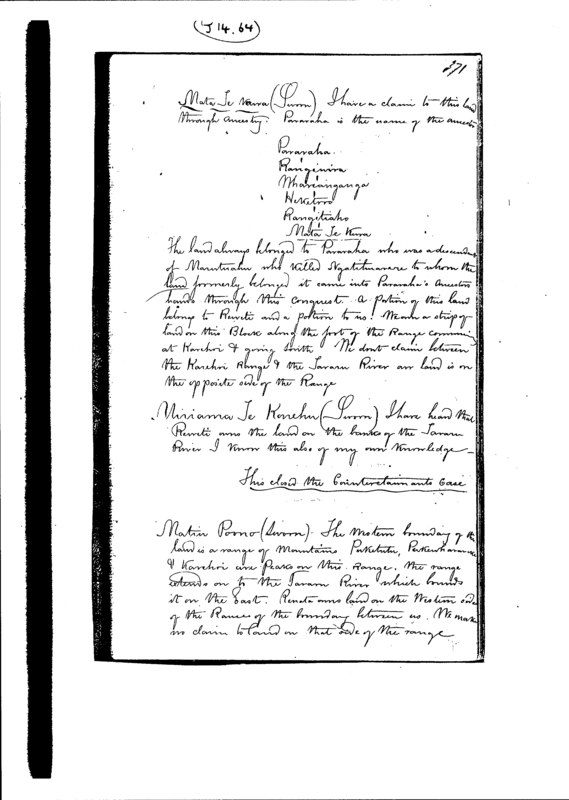 (J 14.64)
371
Mata Te Kura (Sworn) I have a claim to this land
through ancestry. Pararaha is the name of the ancestor
Pararaha
Ranginira
Heketoro
Rangitiaho
Mata Te Kura
The land always belonged to Pararaha who was a descendant
of Marutuahu who killed Ngatihuarere to whom the
land formerly belonged it came into Pararaha's Ancestors
hands through this conquest. A portion of this land
belongs to Reweti and a portion to us. We own a strip of
land on this Block along the foot of the Range commencing
at Karehoi & going South. We dont claim between
the Karehoi Range & the Tararu River our land is on
the opposite side of the Range
Wiriama Te Korehu (Sworn) I have heard that
Reweti owns the land on the banks of the Tararu
River I know this also of my own knowledge
This closed the Counterclaimants Case
Matiu Poono (Sworn). The Western boundary of the
land is a range of Mountains Puketutu,
& Karehoi are Peaks on this Range. The range
extends on to the Tararu River which bounds
it on the East. owns land on the Western side
of the Range of the boundary between us. We make
no claim to land on that side of the range